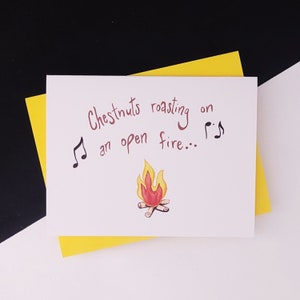 Chestnuts roasting on
an open fire...